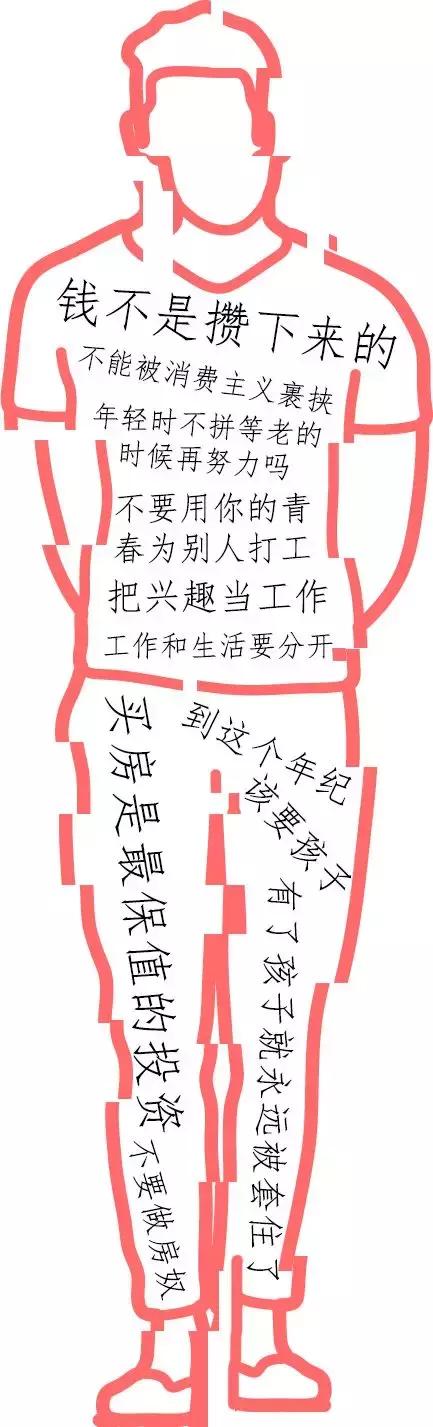 钱不是攒下来的
不能被消费主义裹挟
年轻时不拼等老的
时候再努力吗
不要用你的青
春为别人打工
把兴趣当工作
工作和生活要分开
买房是最保值的投资
不要做房奴
到这个年纪
该要孩子
有了孩子就永远被套住了